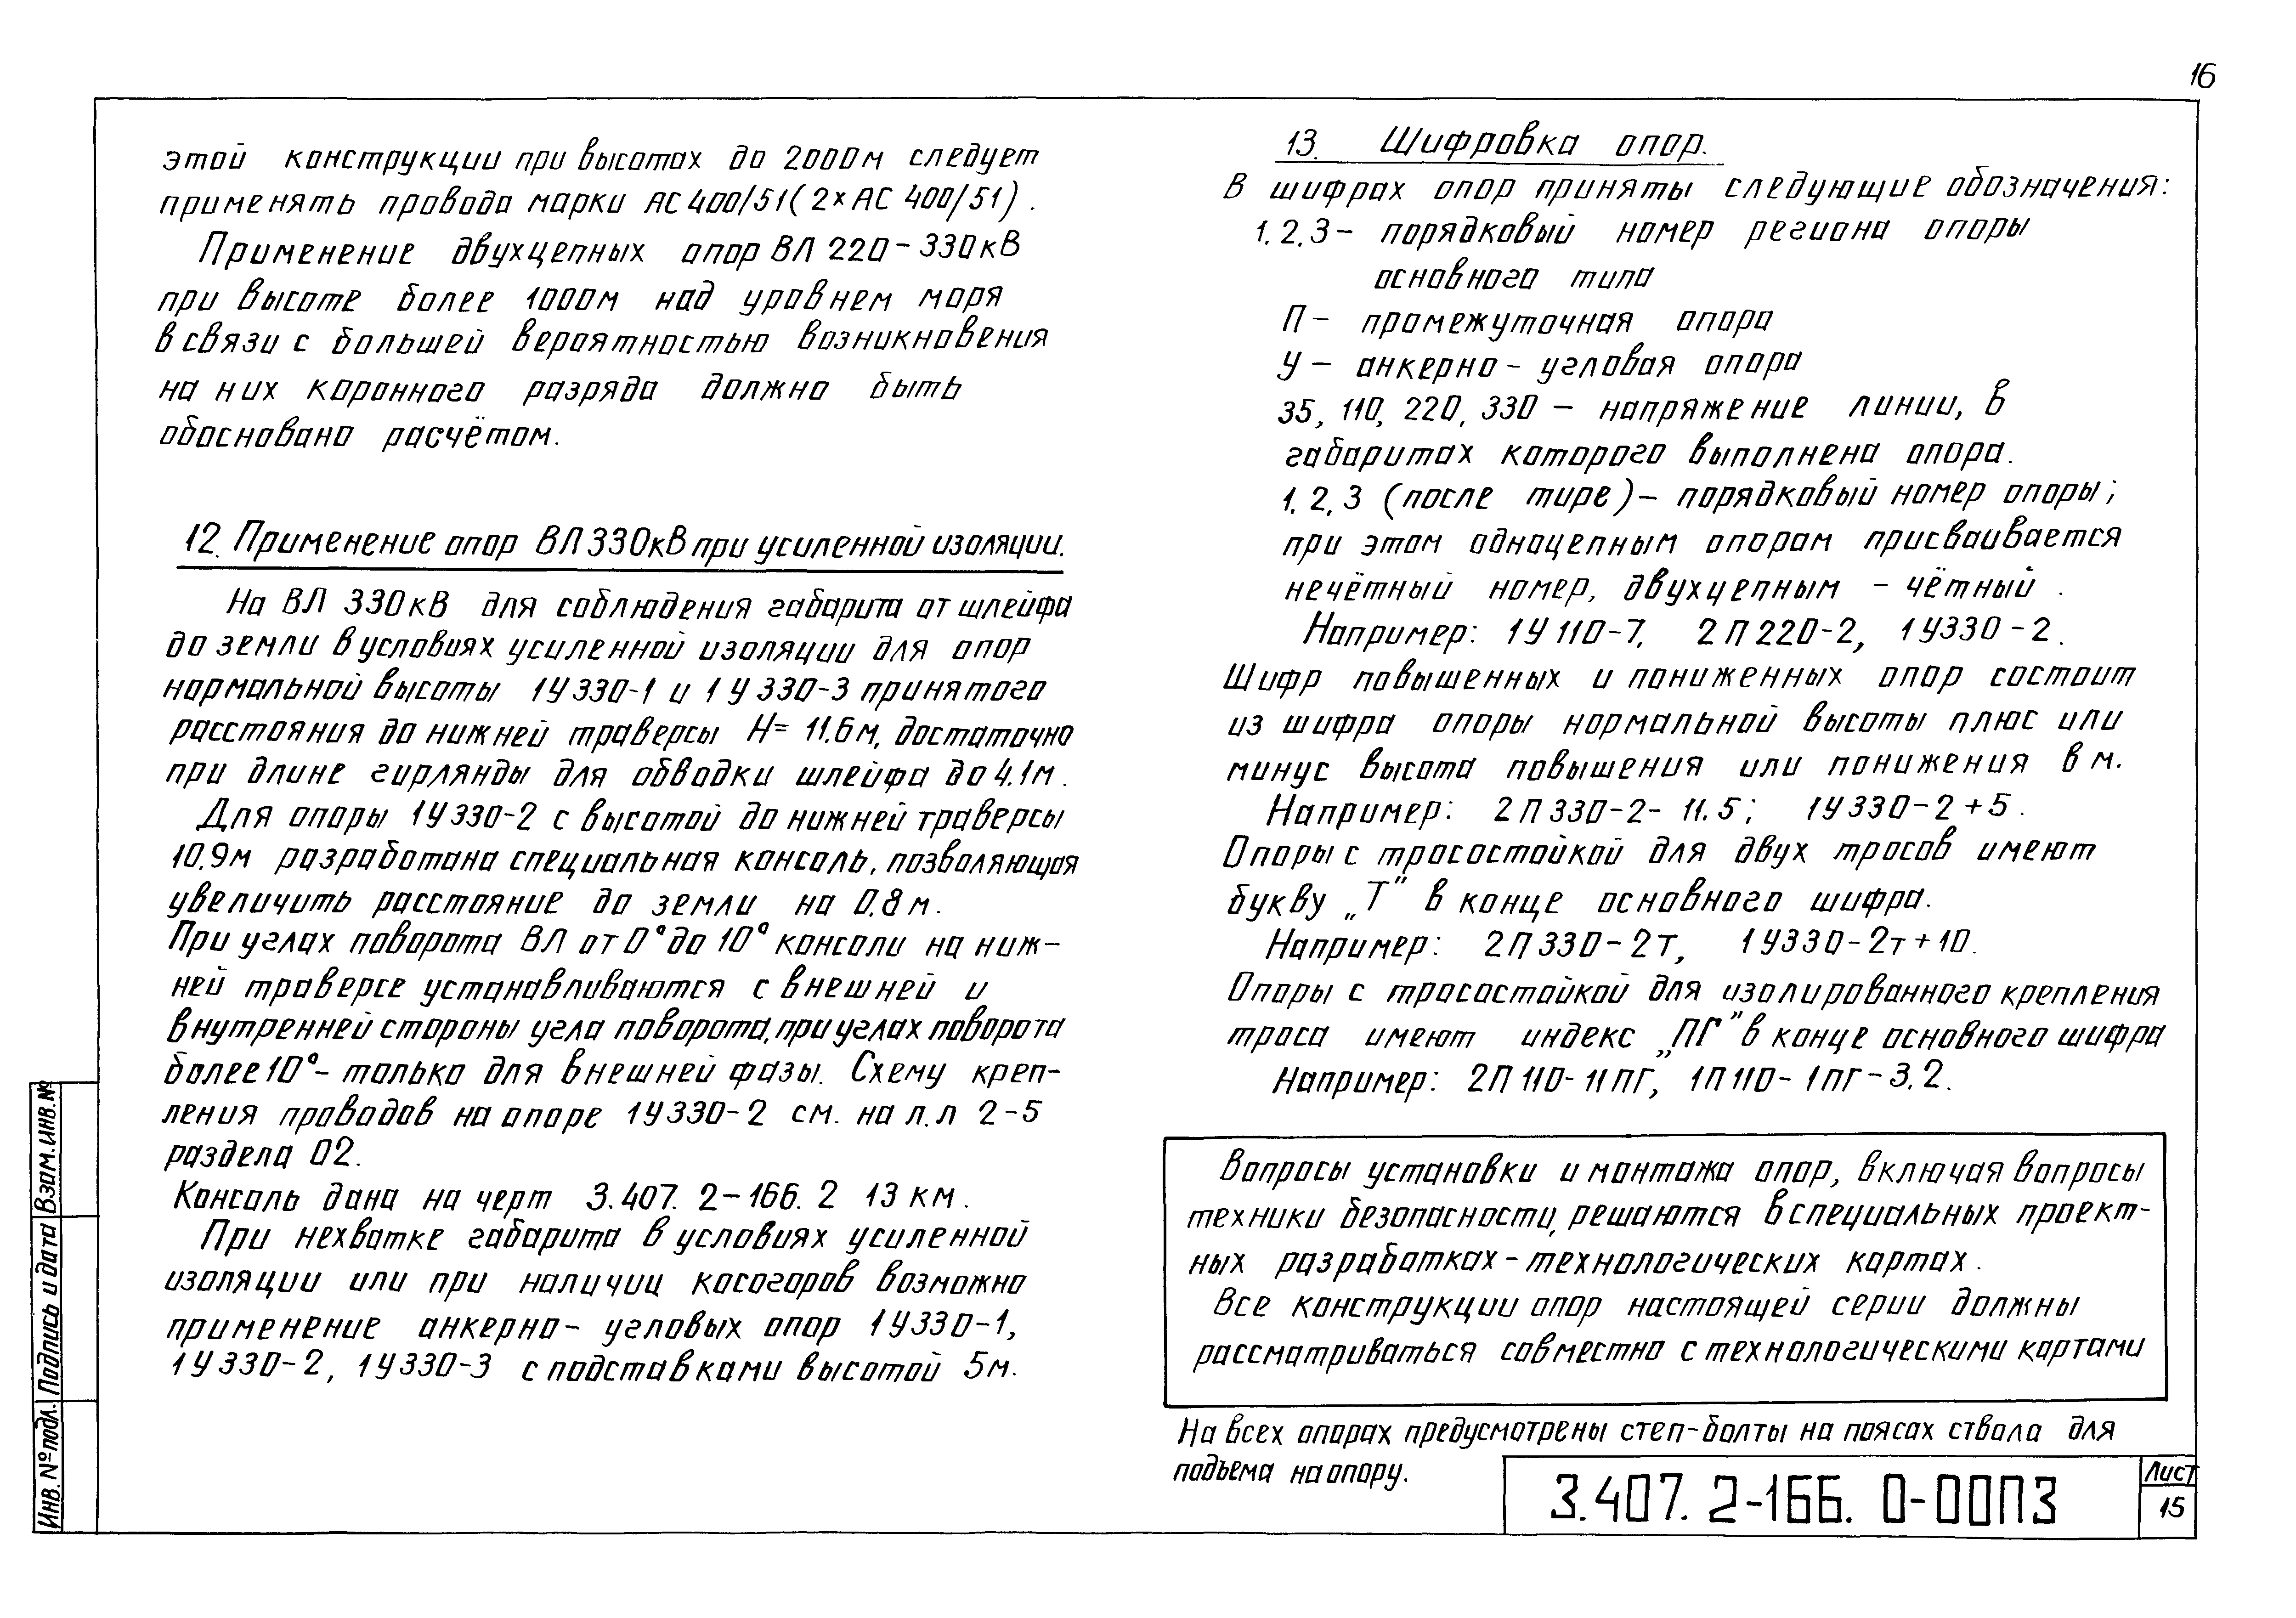 16
этой конструкции при высотах до 2000м следует
применять провода марки АС 400/51 (2×АС 400/51).
Применение двухцепных опор ВЛ 220-330кВ
при высоте более 1000м над уровнем моря
в связи с большей вероятностью возникновения
на них коронного разряда должно быть
обосновано расчётом.
12. Применение опор ВЛ 330кВ при усиленной изоляции.
На ВЛ 330кВ для соблюдения габарита от шлейфа
до земли в условиях усиленной изоляции для опор
нормальной высоты 1У330-1 и 1У330-3 принятого
расстояния до нижней траверсы Н= 11.6м, достаточно
при длине гирлянды для обводки шлейфа до 4.1м.
Для опоры 1У330-2 с высотой до нижней траверсы
10.9м разработана специальная консоль, позволяющая
увеличить расстояние до земли на 0.8м.
При углах поворота ВЛ от 0° до 10° консоли на ниж-
ней траверсе устанавливаются с внешней и
внутренней стороны угла поворота, при углах поворота
более 10° - только для внешней фазы. Схему креп-
ления проводов на опоре 1У330-2 см. на л.л 2-5
раздела 02.
Консоль дана на черт 3.407. 2-166. 2 13 км.
При нехватке габарита в условиях усиленной
изоляции или при наличии косогоров возможно
применение анкерно- угловых опор 1У330-1,
1У330-2, 1У330-3 с подставками высотой 5м.
13. Шифровка опор.
В шифрах опор приняты следующие обозначения:
1.2.3 - порядковый номер региона опоры
основного типа
П - промежуточная опора
У - анкерно-угловая опора
35, 110, 220, 330 - напряжение линии, в
габаритах которого выполнена опора.
1.2.3 (после тире) - порядковый номер опоры;
при этом одноцепным опорам присваивается
нечётный номер, двухцепным - чётный.
Например: 1У110-7, 2П220-2, 1У330-2.
Шифр повышенных и пониженных опор состоит
из шифра опоры нормальной высоты плюс или
минус высота повышения или понижения в м.
Например: 2П330-2- 11.5; 1У330-2+5.
Опоры с тросостойкой для двух тросов имеют
букву „Т" в конце основного шифра.
Например: 2П330-2т, 1У330-2т+10.
Опоры с тросостойкой для изолированного крепления
троса имеют индекс „ПГ" в конце основного шифра
Например: 2П110-11ПГ, 1П110-1ПГ-3.2.
Вопросы установки и монтажа опор, включая вопросы
техники безопасности, решаются в специальных проект-
ных разработках - технологических картах.
Все конструкции опор настоящей серии должны
рассматриваться совместно с технологическими картами
На всех опорах предусмотрены степ-болты на поясах ствола для
подъема на опору.
3.407. 2-166. 0-00ПЗ
Лист
15
Инв. № подл.
Подпись и дата
Взам. инв. №